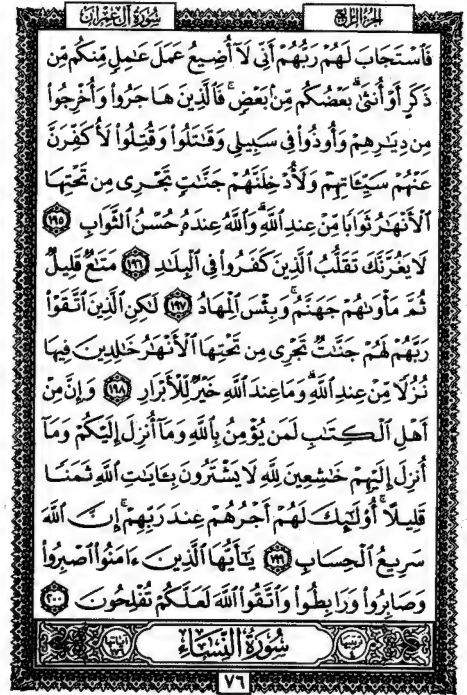 سورة آل عمران الجزء الرابع
فَٱسۡتَجَابَ لَهُمۡ رَبُّهُمۡ أَنِّي لَآ أُضِيعُ عَمَلَ عَٰمِلٖ مِّنكُم مِّن
ذَكَرٍ أَوۡ أُنثَىٰۖ بَعۡضُكُم مِّنۢ بَعۡضٖۖ فَٱلَّذِينَ هَاجَرُواْ وَأُخۡرِجُواْ
مِن دِيَٰرِهِمۡ وَأُوذُواْ فِي سَبِيلِي وَقَٰتَلُواْ وَقُتِلُواْ لَأُكَفِّرَنَّ
عَنۡهُمۡ سَيِّـَٔاتِهِمۡ وَلَأُدۡخِلَنَّهُمۡ جَنَّٰتٖ تَجۡرِي مِن تَحۡتِهَا
ٱلۡأَنۡهَٰرُ ثَوَابٗا مِّنۡ عِندِ ٱللَّهِۚ وَٱللَّهُ عِندَهُۥ حُسۡنُ ٱلثَّوَابِ ١٩٥
لَا يَغُرَّنَّكَ تَقَلُّبُ ٱلَّذِينَ كَفَرُواْ فِي ٱلۡبِلَٰدِ ١٩٦ مَتَٰعٞ قَلِيلٞ
ثُمَّ مَأۡوَىٰهُمۡ جَهَنَّمُۖ وَبِئۡسَ ٱلۡمِهَادُ ١٩٧ لَٰكِنِ ٱلَّذِينَ ٱتَّقَوۡاْ
رَبَّهُمۡ لَهُمۡ جَنَّٰتٞ تَجۡرِي مِن تَحۡتِهَا ٱلۡأَنۡهَٰرُ خَٰلِدِينَ فِيهَا
نُزُلٗا مِّنۡ عِندِ ٱللَّهِۗ وَمَا عِندَ ٱللَّهِ خَيۡرٞ لِّلۡأَبۡرَارِ ١٩٨ وَإِنَّ مِنۡ
أَهۡلِ ٱلۡكِتَٰبِ لَمَن يُؤۡمِنُ بِٱللَّهِ وَمَآ أُنزِلَ إِلَيۡكُمۡ وَمَآ
أُنزِلَ إِلَيۡهِمۡ خَٰشِعِينَ لِلَّهِ لَا يَشۡتَرُونَ بِـَٔايَٰتِ ٱللَّهِ ثَمَنٗا
قَلِيلًاۚ أُوْلَٰٓئِكَ لَهُمۡ أَجۡرُهُمۡ عِندَ رَبِّهِمۡۗ إِنَّ ٱللَّهَ
سَرِيعُ ٱلۡحِسَابِ ١٩٩ يَٰٓأَيُّهَا ٱلَّذِينَ ءَامَنُواْ ٱصۡبِرُواْ
وَصَابِرُواْ وَرَابِطُواْ وَٱتَّقُواْ ٱللَّهَ لَعَلَّكُمۡ تُفۡلِحُونَ ٢٠٠
سُورَةُ النِّسَاءِ
٧٦